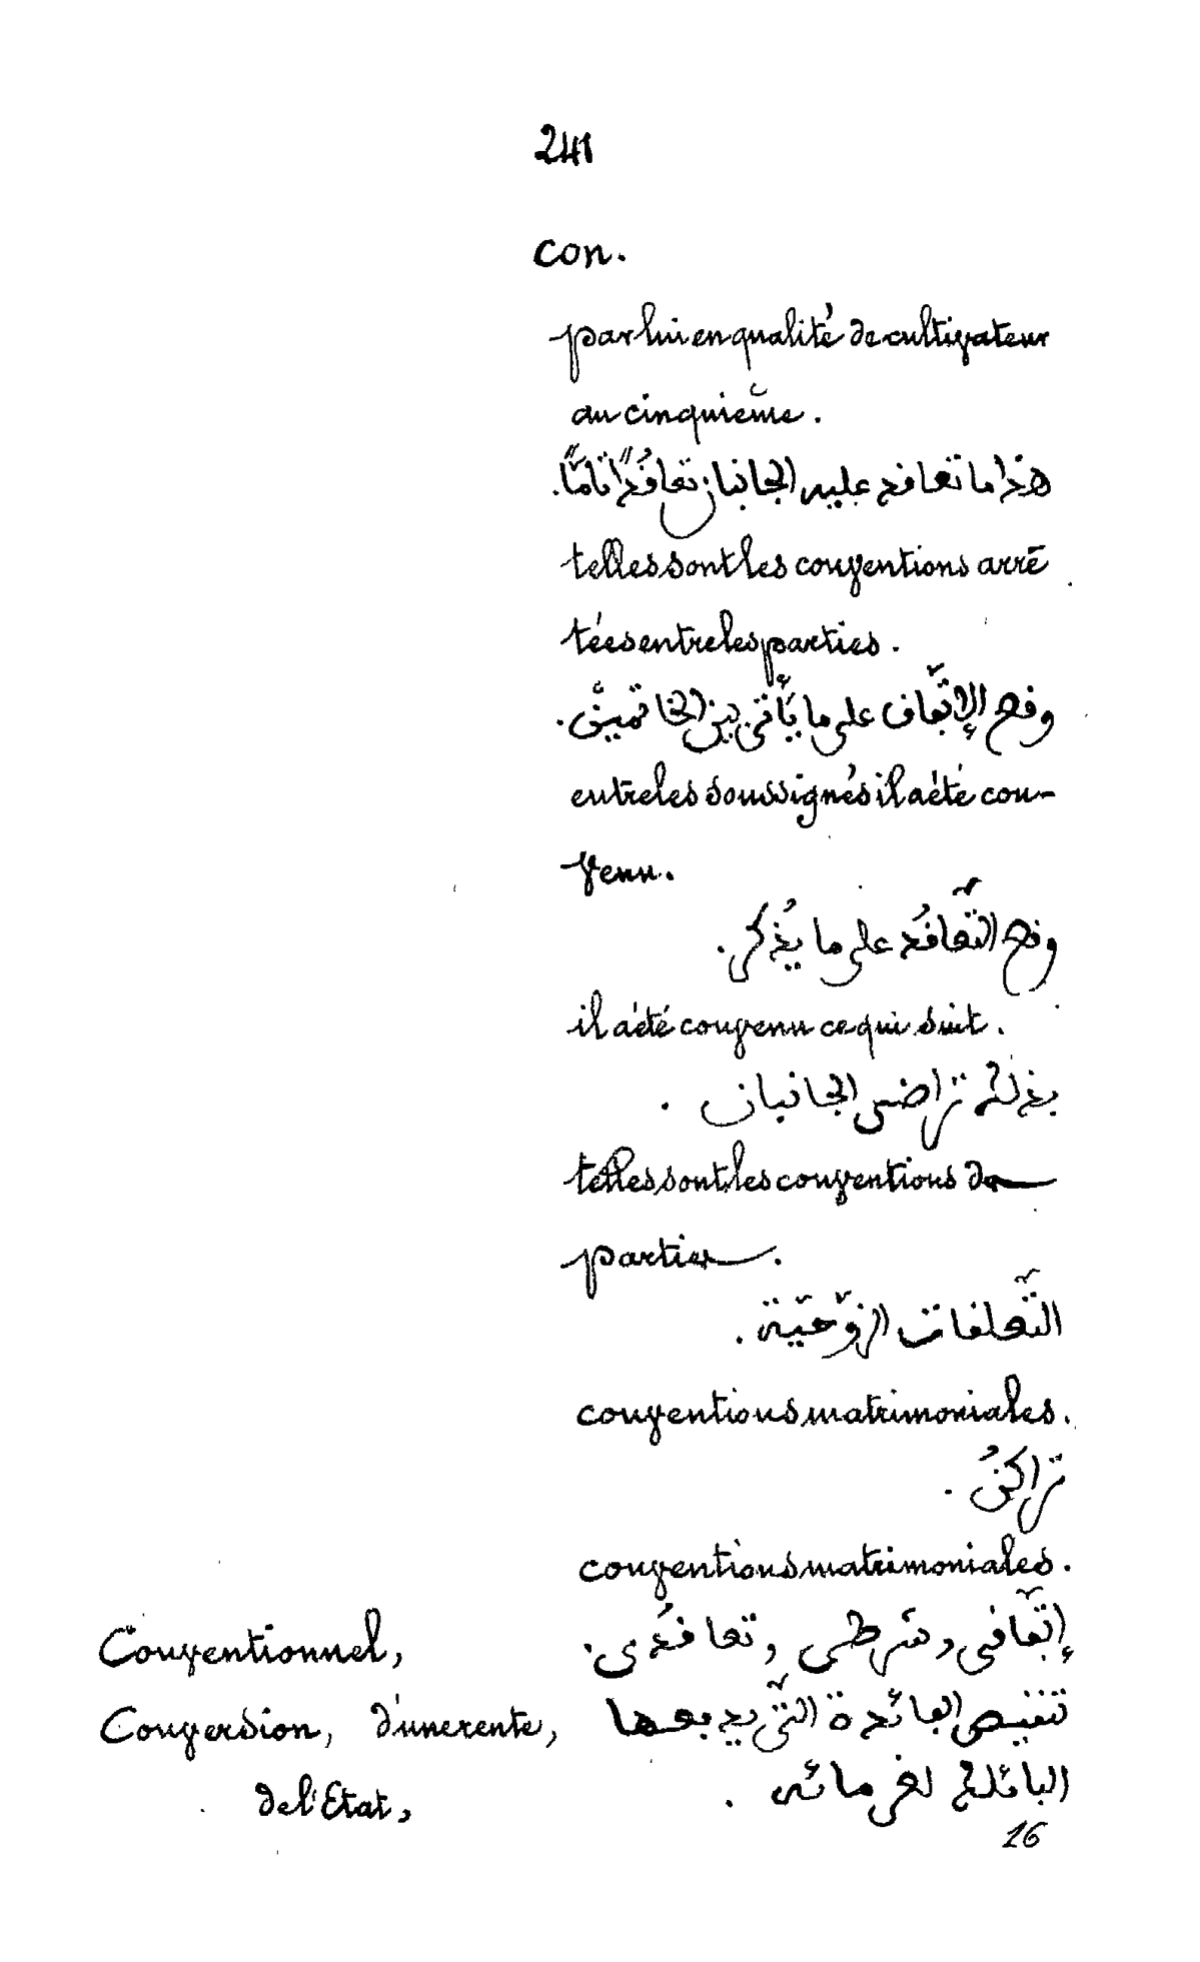 241
con.
par lui en qualité de cultivateur
au cinquième.
هذا ما تعاقد عليه الجانبان تعاقُدًا تامًّا.
telles sont les conventions arrê
tées entre les parties.
وقع الإتّفاق على ما يأتي بين الخاتمين.
entre les soussignés il a été con-
venu.
وقع التّعاقُد على ما يُذكر.
il a été convenu ce qui suit.
بذلك تراضى الجانبان.
telles sont les conventions de
parties.
التّعلقات الزّوجيّة.
conventions matrimoniales.
تراكنُ.
conventions matrimoniales.
Conventionnel, إتّفاقي وشرطي وتعاقُدي.
Conversion, d'une rente, تنقيص الفائدة الّتي يدفعها
de l'Etat, البائلك لغرمائه.
16